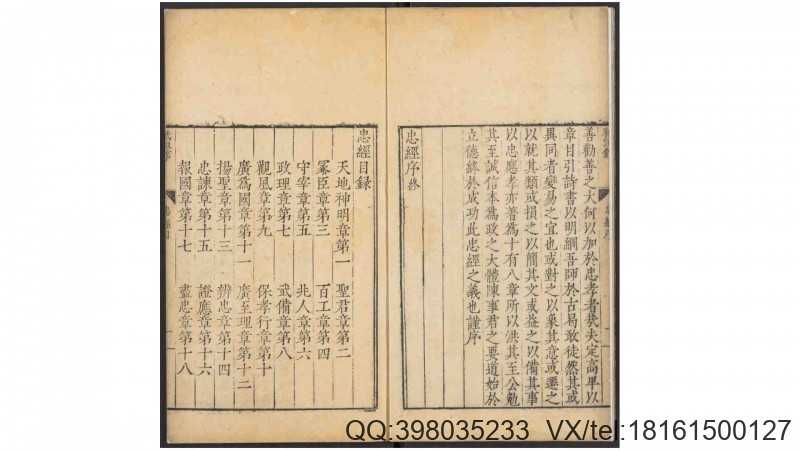 善勸善之大何以加於忠孝者㦲夫定高卑以
章目引詩書以明綱吾師於古曷敢徒然其或
異同者變易之宜也或對之以象其意或遷之
以就其類或損之以簡其文或益之以備其事
以忠應孝亦著為十有八章所以洪其至公勉
其至誠信本為政之大體陳事君之要道始於
立德終於成功此忠經之義也謹序
忠經序 終
忠經目録
天地神明章第一 聖君章第二
冢臣章第三 百工章第四
守宰章第五 兆人章第六
政理章第七 武備章第八
觀風章第九 保孝行章第十
廣為國章第十一 廣至理章第十二
揚聖章第十三 辨忠章第十四
忠諫章第十五 證應章第十六
報國章第十七 盡忠章第十八
QQ:398035233 VX/tel:18161500127